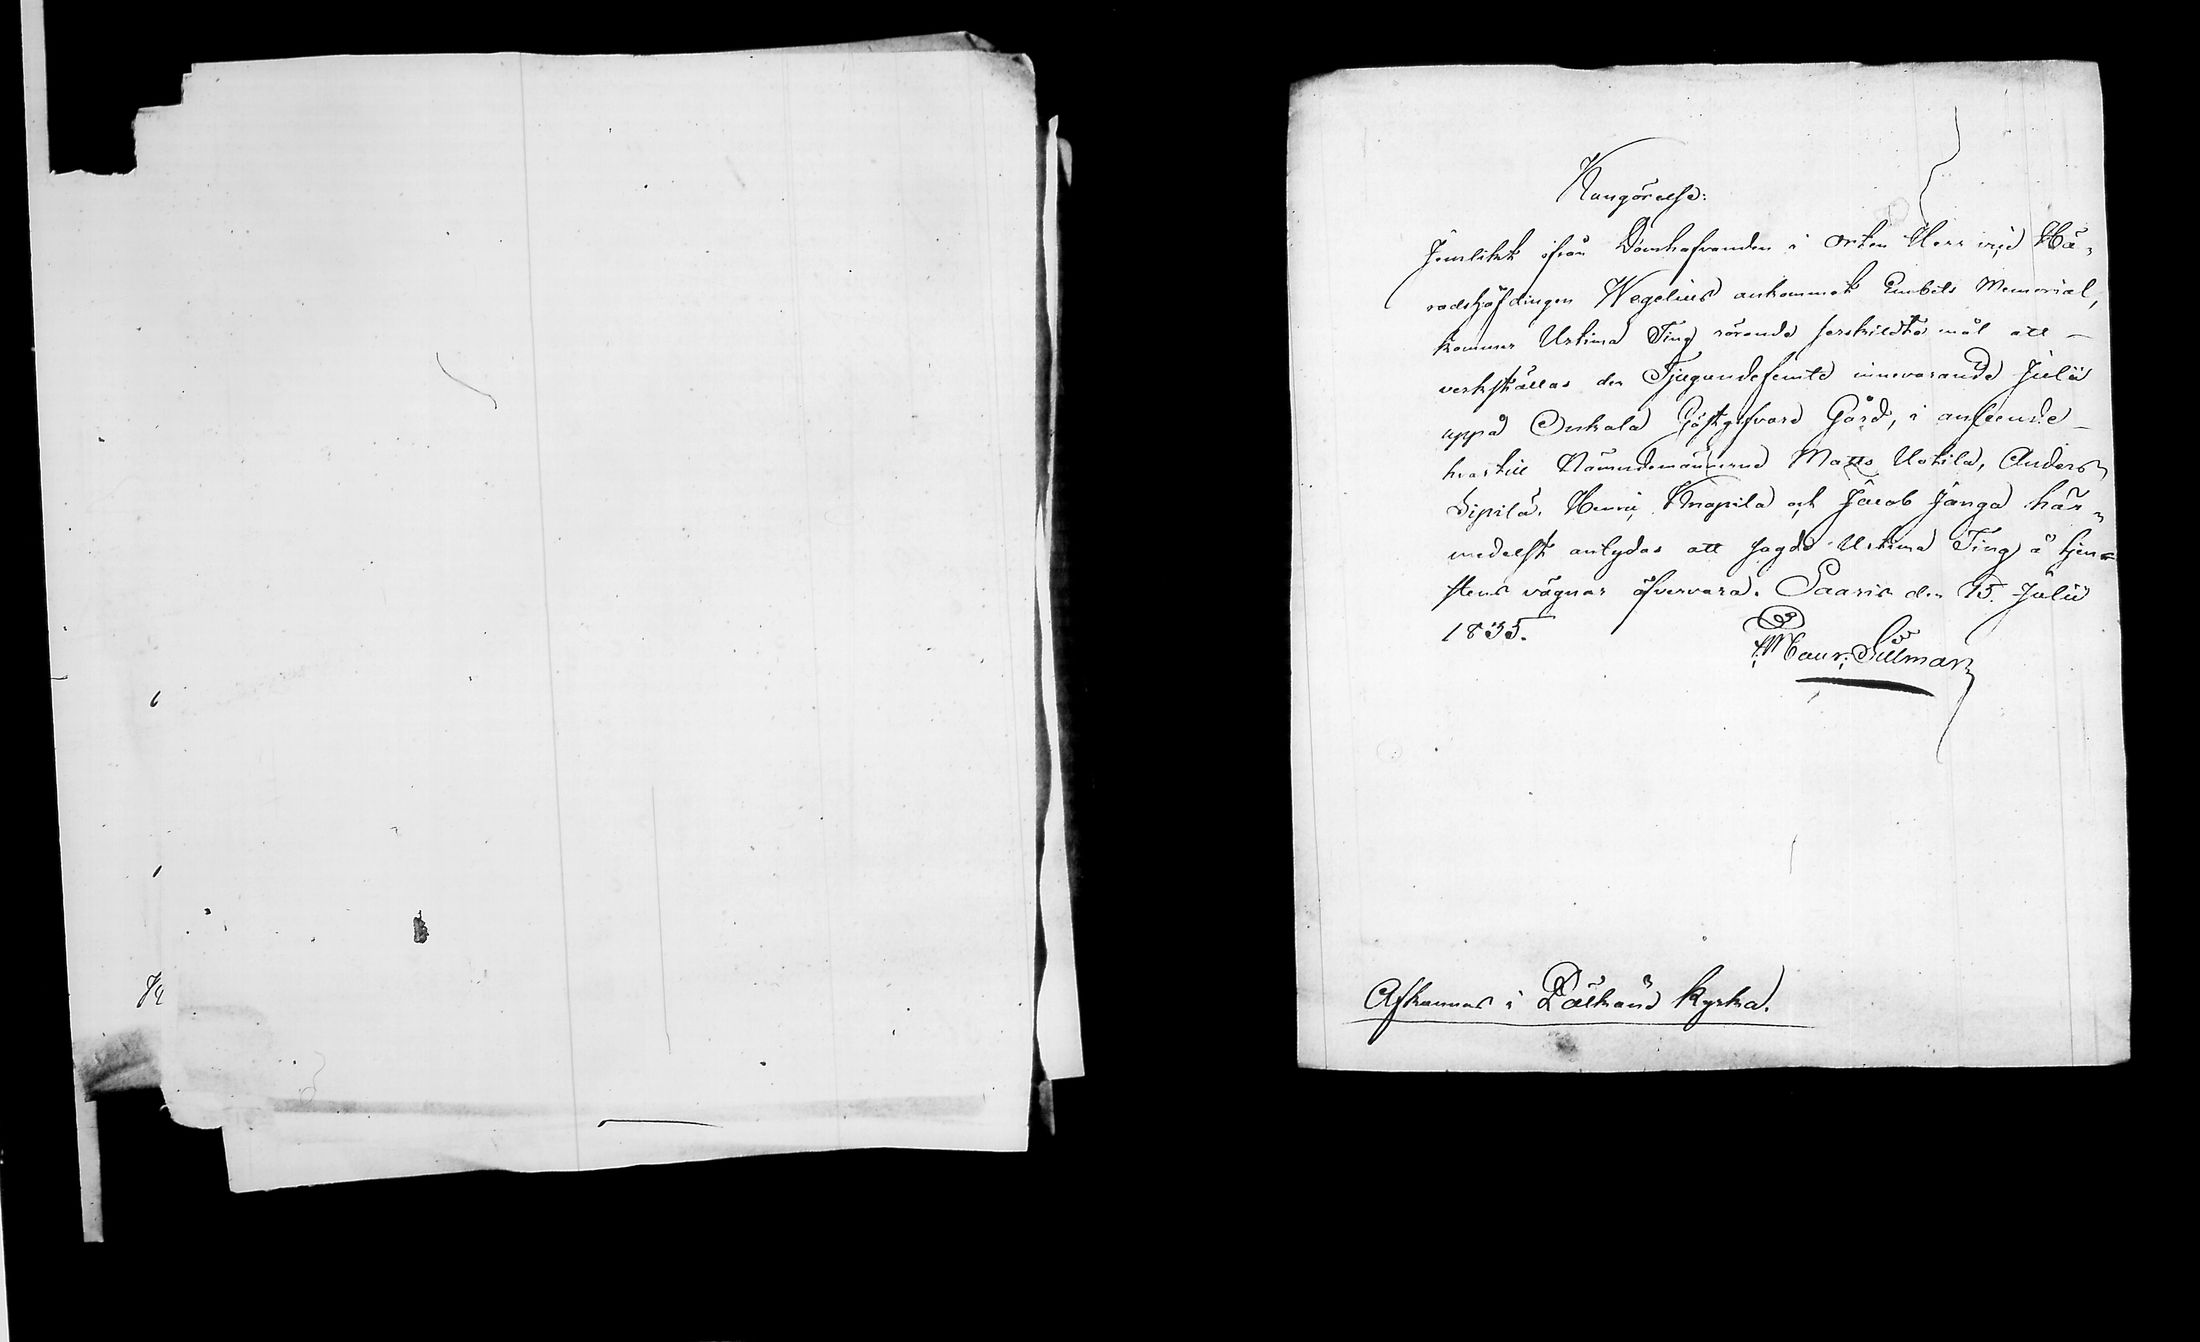 Kungörelse:
Jemlikt ifrån Domhafvanden i Orten Herr vice Hä-
radshöfdingen Wegelius ankommit Embets Memorial,
kommer Urtima Ting rörande serskildte mål att
verkställas den Tjugundefemte innevarande Julii
uppå Onkala Gästgifvare Gård, i anseende
hvartill Nämndemännerne Matts Uotila, Anders
Sipilä, Henric Knapila och Jacob Janga här-
medelst antydas att sagde Urtima Ting å tjen-
stens vägnar öfvervara. Saaris den 15. Julii
1835.
Maur: Silman
Afkunnas i Pälkäne Kyrka.